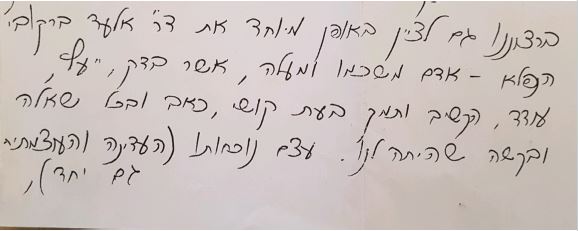 ברצוננו גם לציין באופן מיוחד את דר' אלעד ברקוביץ'
הנפלא – אדם משכמו ומעלה, אשר בדק,
עודד, הקשיב ותמך בעת קושי, כאב ובכל שאלה
ובקשה שהיתה לנו. עצם נוכחותו (העדינה והעוצמתית
גם יחד),